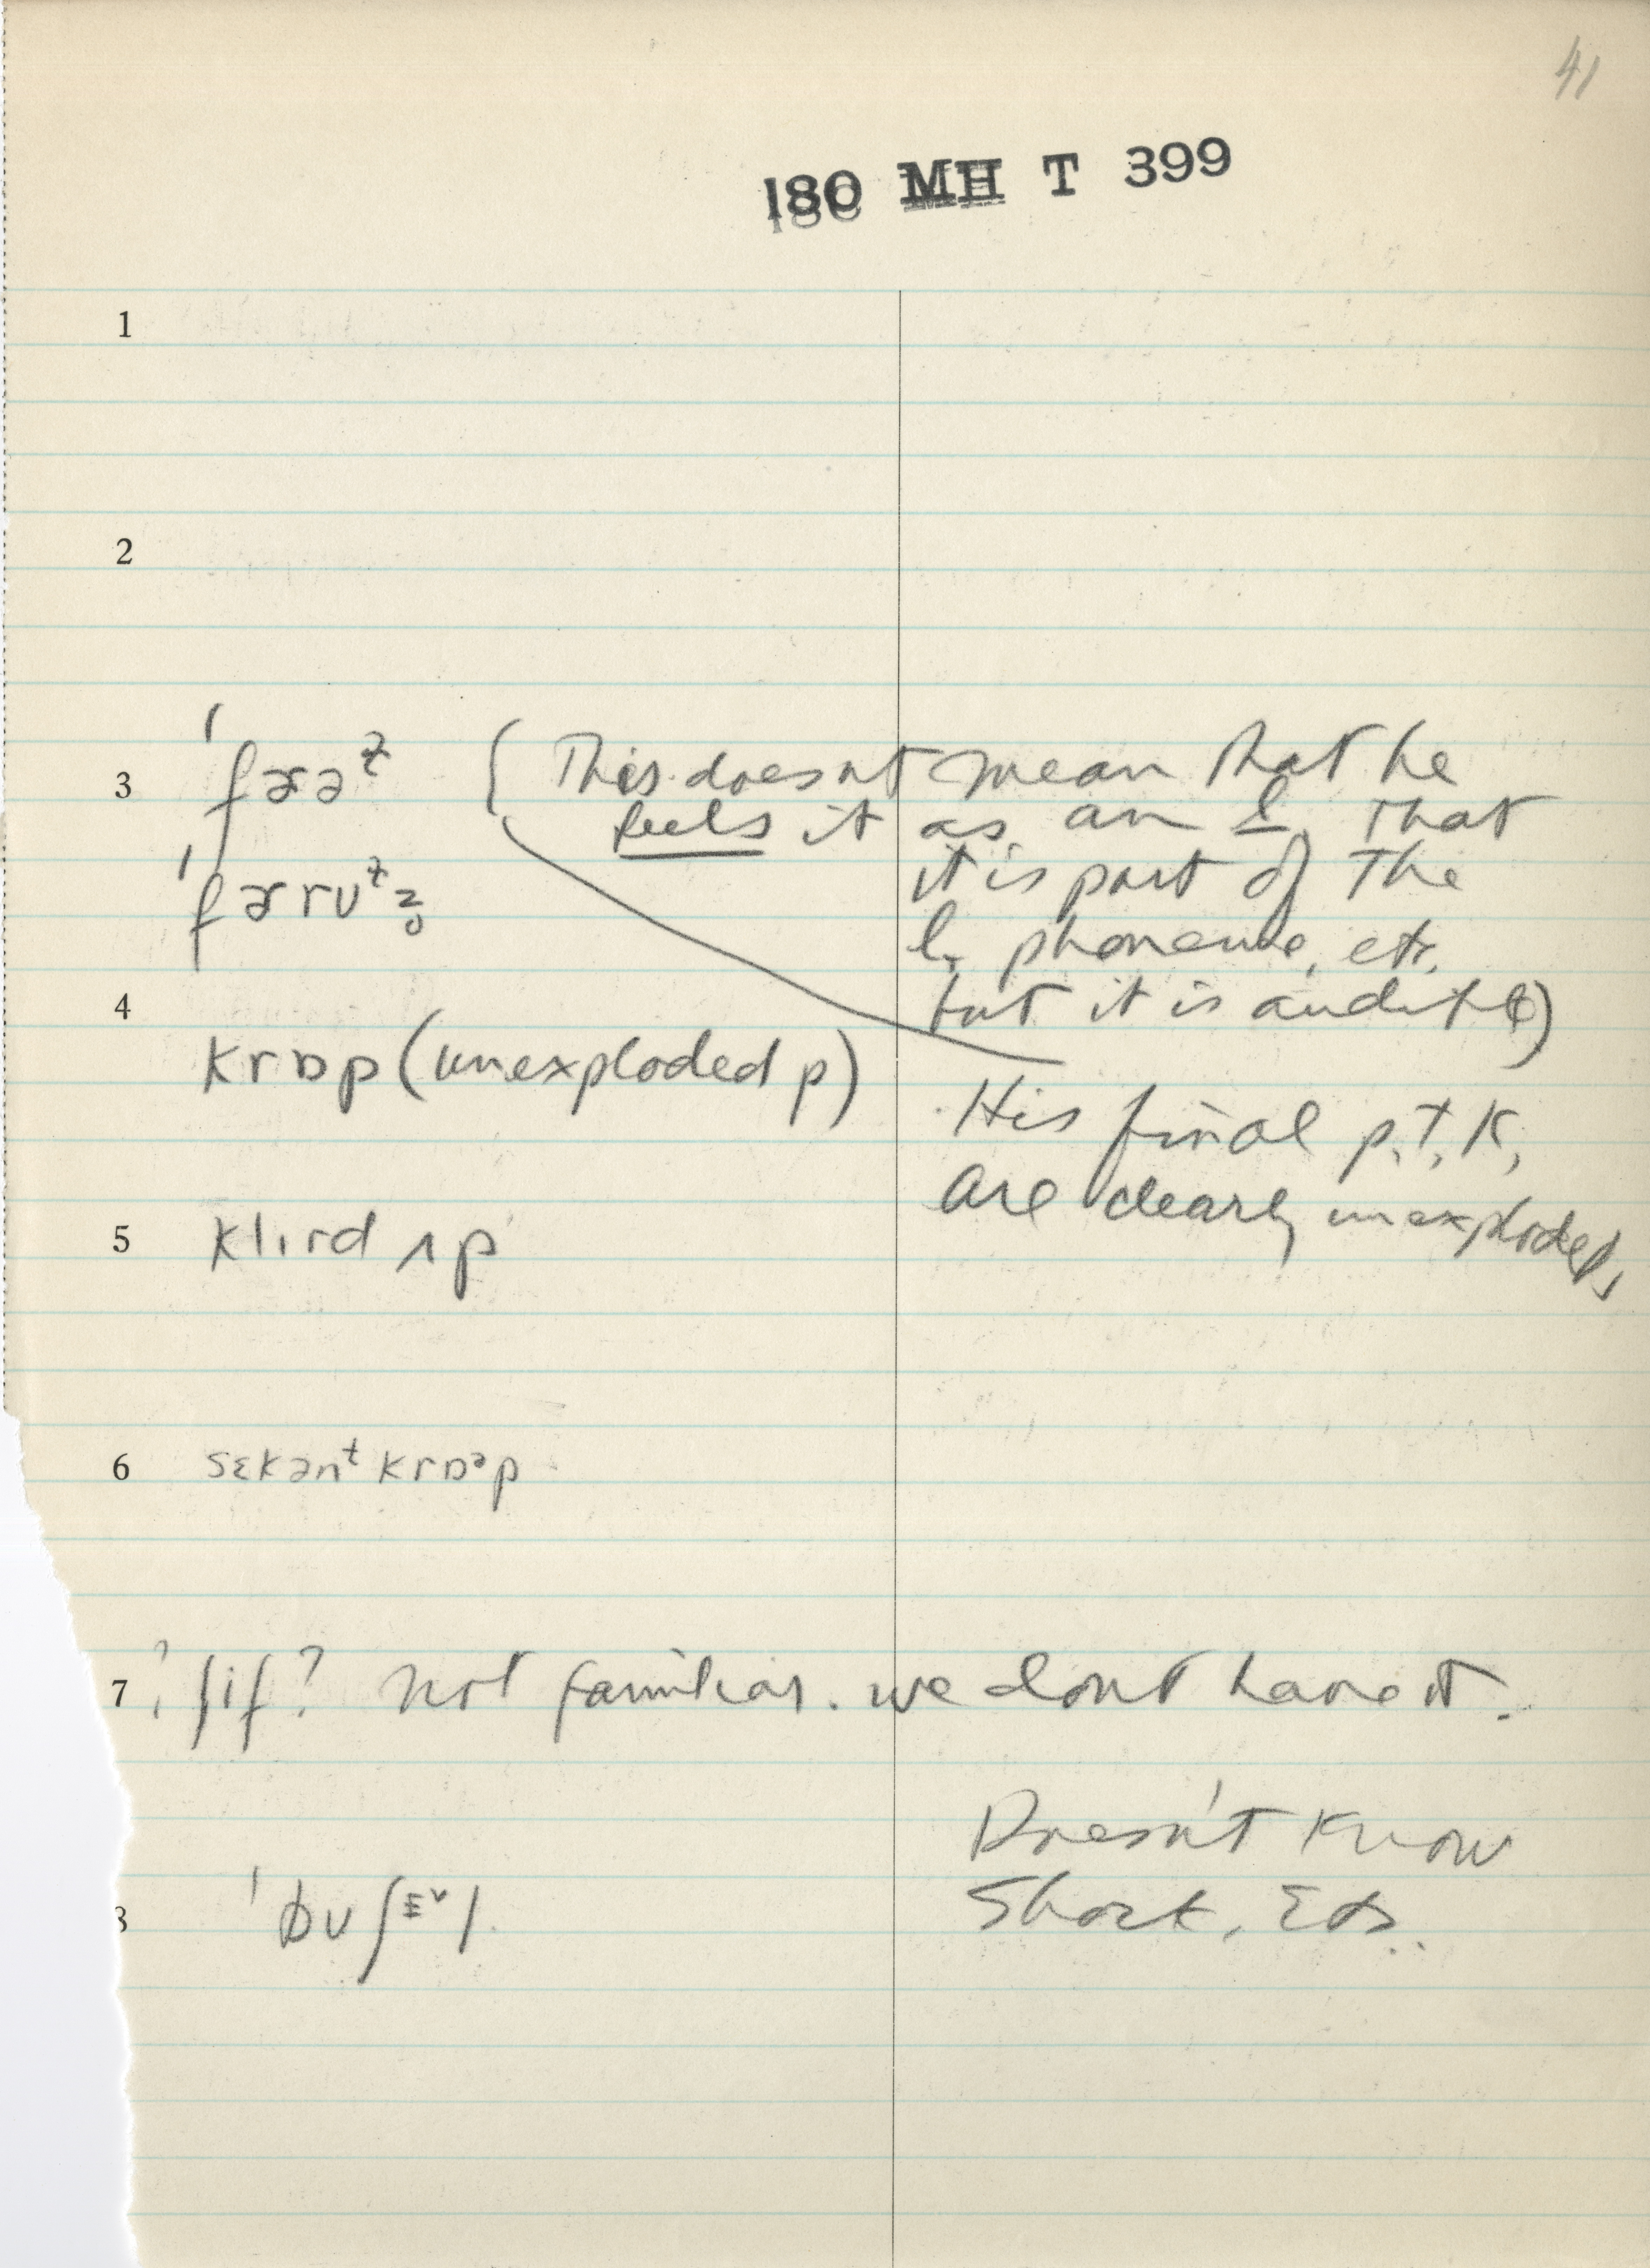 41
180 MH T 399
1
2
3 ˈfɚəᵗ (This doesnt mean that he
feels it as an l, that
ˈfɚrʊᵗz̥ it is part of the
l phoneme, etc.
4 but it is audible)
krɒp (unexploded p)
His final p, t, k,
are clearly unexploded,
5 klɪrd ʌp
6 sɛkənᵗ krɒᵊp
7 ? ʃif? not familiar. we dont have it.
Doesn't know
8 Shock, Etc.